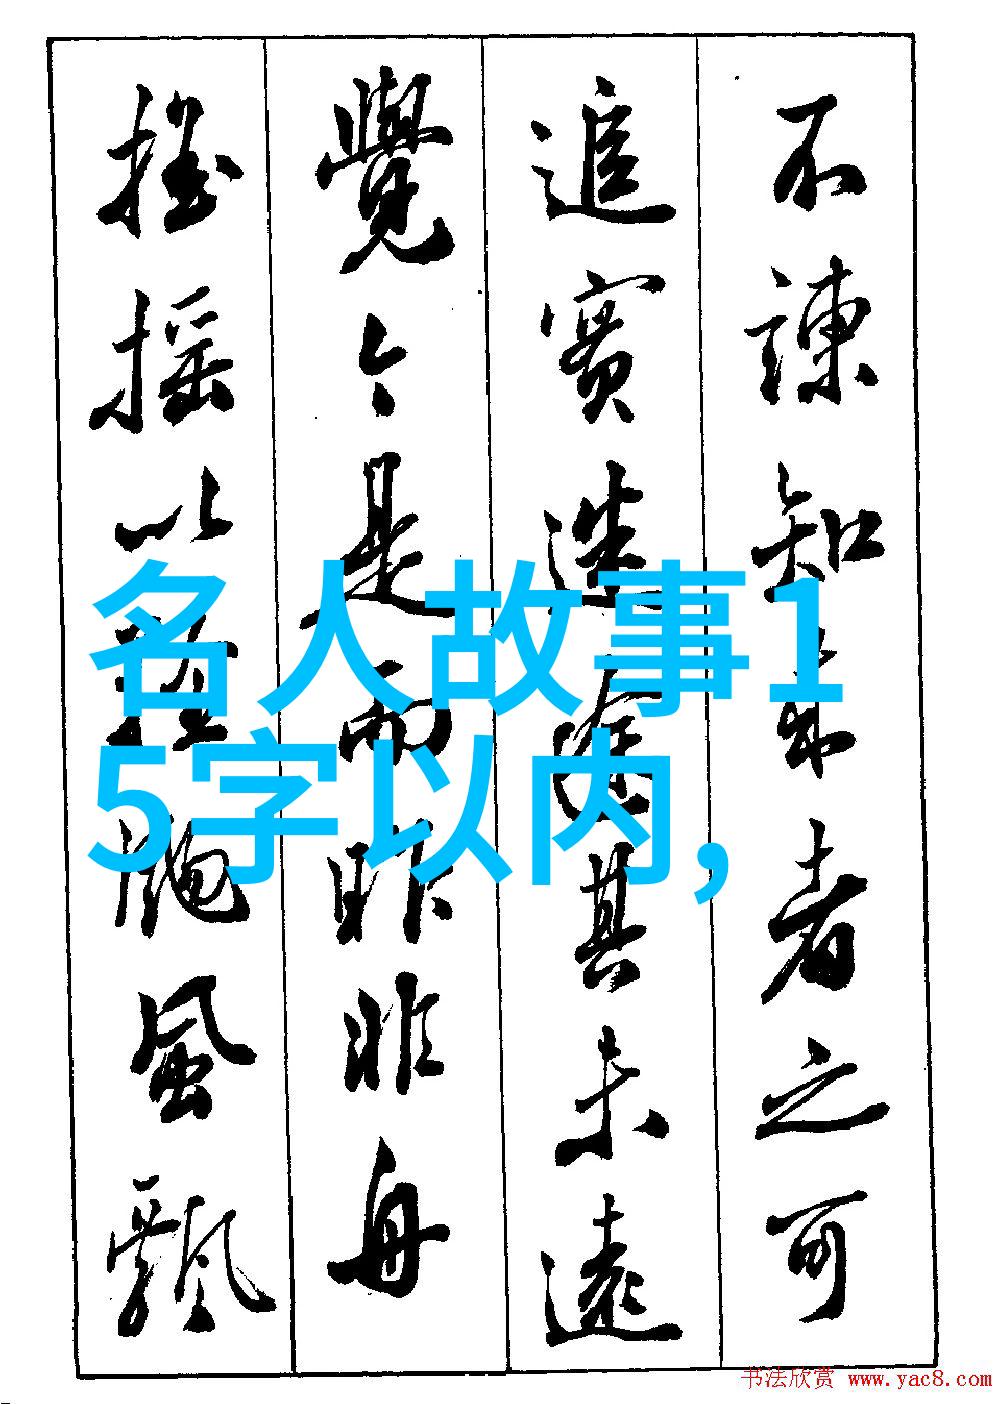 不諫知来者之可
追實迷途其未遠
覺今是而昨非舟
摇摇以輕颺風飄
名人故事1
5字以内,
书法欣赏 www.yac8.com